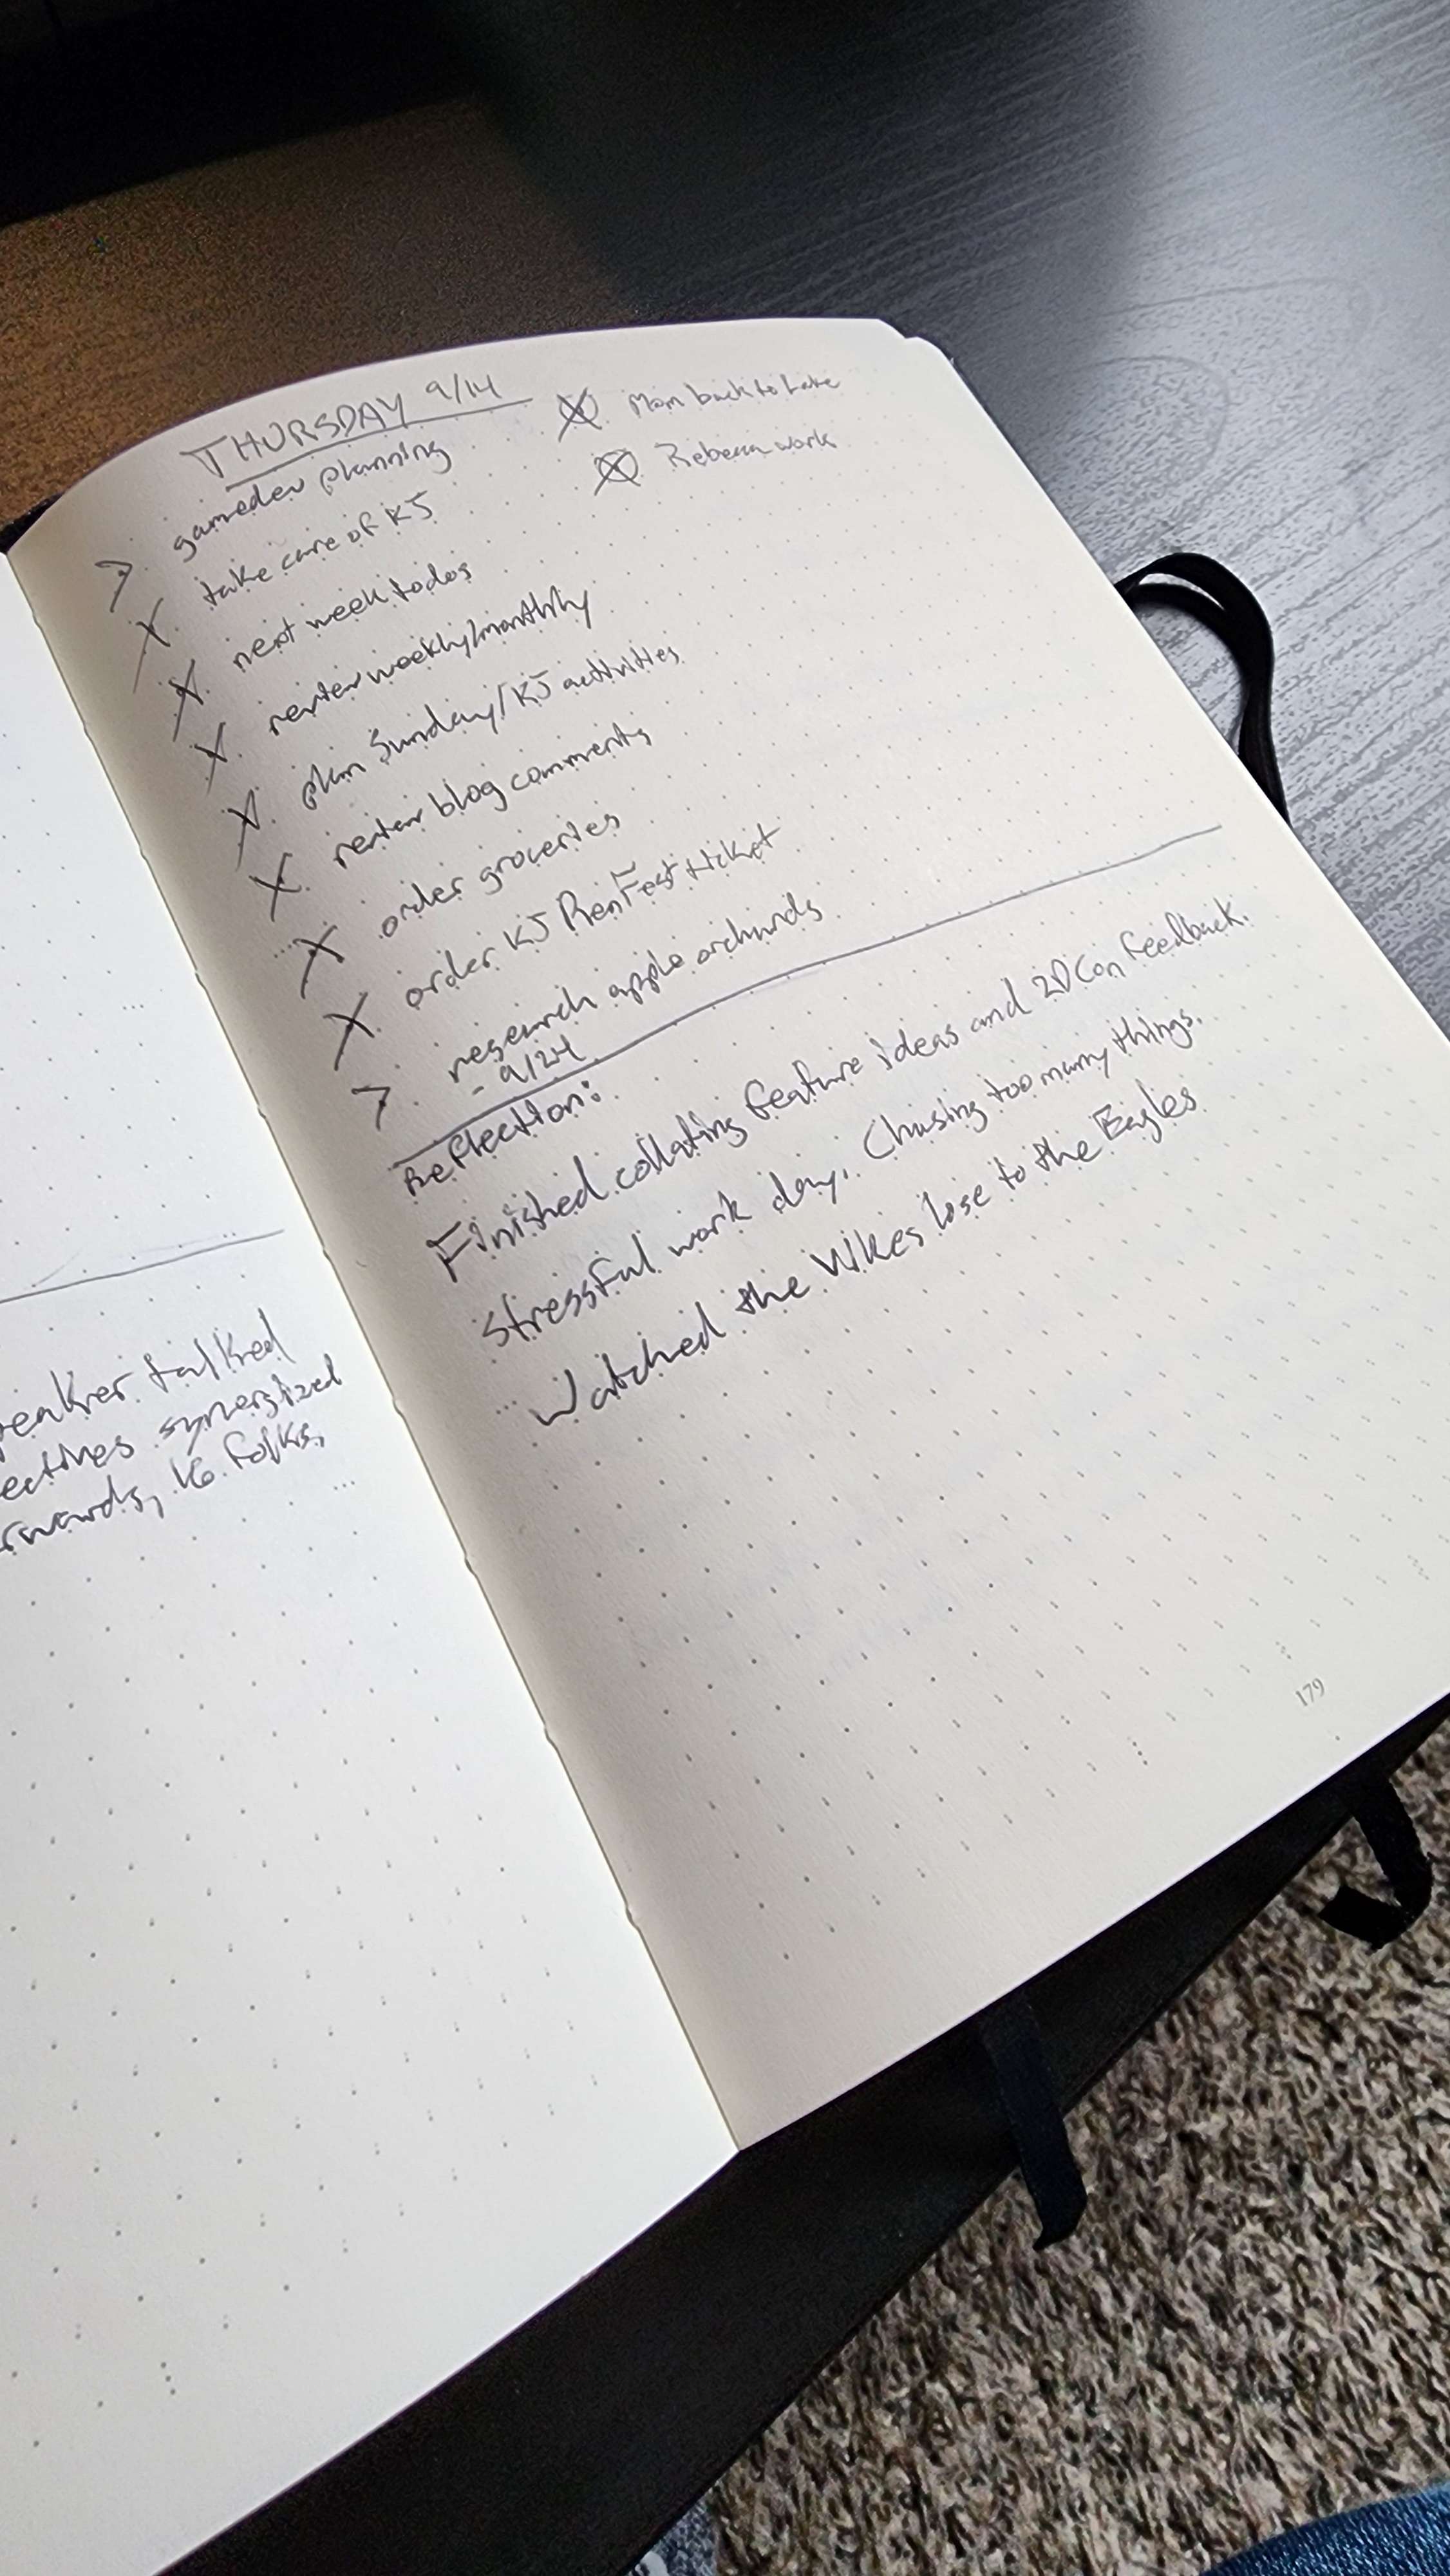 reaker talked
ectives synergized
rwards, 16 folks,
THURSDAY 9/14
> gameden planning
X take care of KJ
X next week todos
X review weekly/monthly
X plan Sunday/KJ activities
X review blog comments
X order groceries
X order KJ RenFest ticket
> research apple orchards
- 9/24
Mom back to Lake
Rebecca work
Reflection:
Finished collating feature ideas and 2DCon feedback.
Stressful work day. Chasing too many things.
Watched the Vikes lose to the Eagles
179